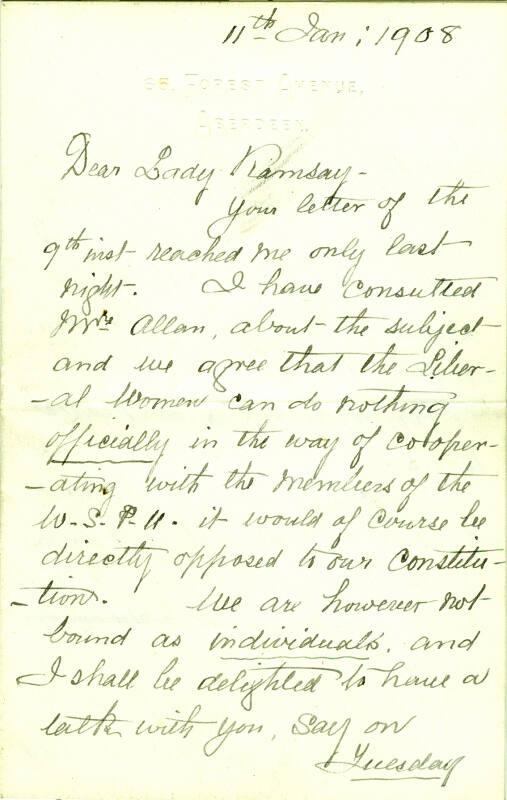 11th Jan; 1908
66, FOREST AVENUE,
ABERDEEN.
Dear Lady Ramsay-
Your letter of the
9th inst reached me only last
night. I have consulted
Mrs Allan, about the subject
and we agree that the Liber-
-al Women can do nothing
officially in the way of cooper-
-ating with the members of the
W.S.P.U. it would of course be
directly opposed to our Constitu-
-tion. We are however not
bound as individuals, and
I shall be delighted to have a
talk with you, say on
Tuesday